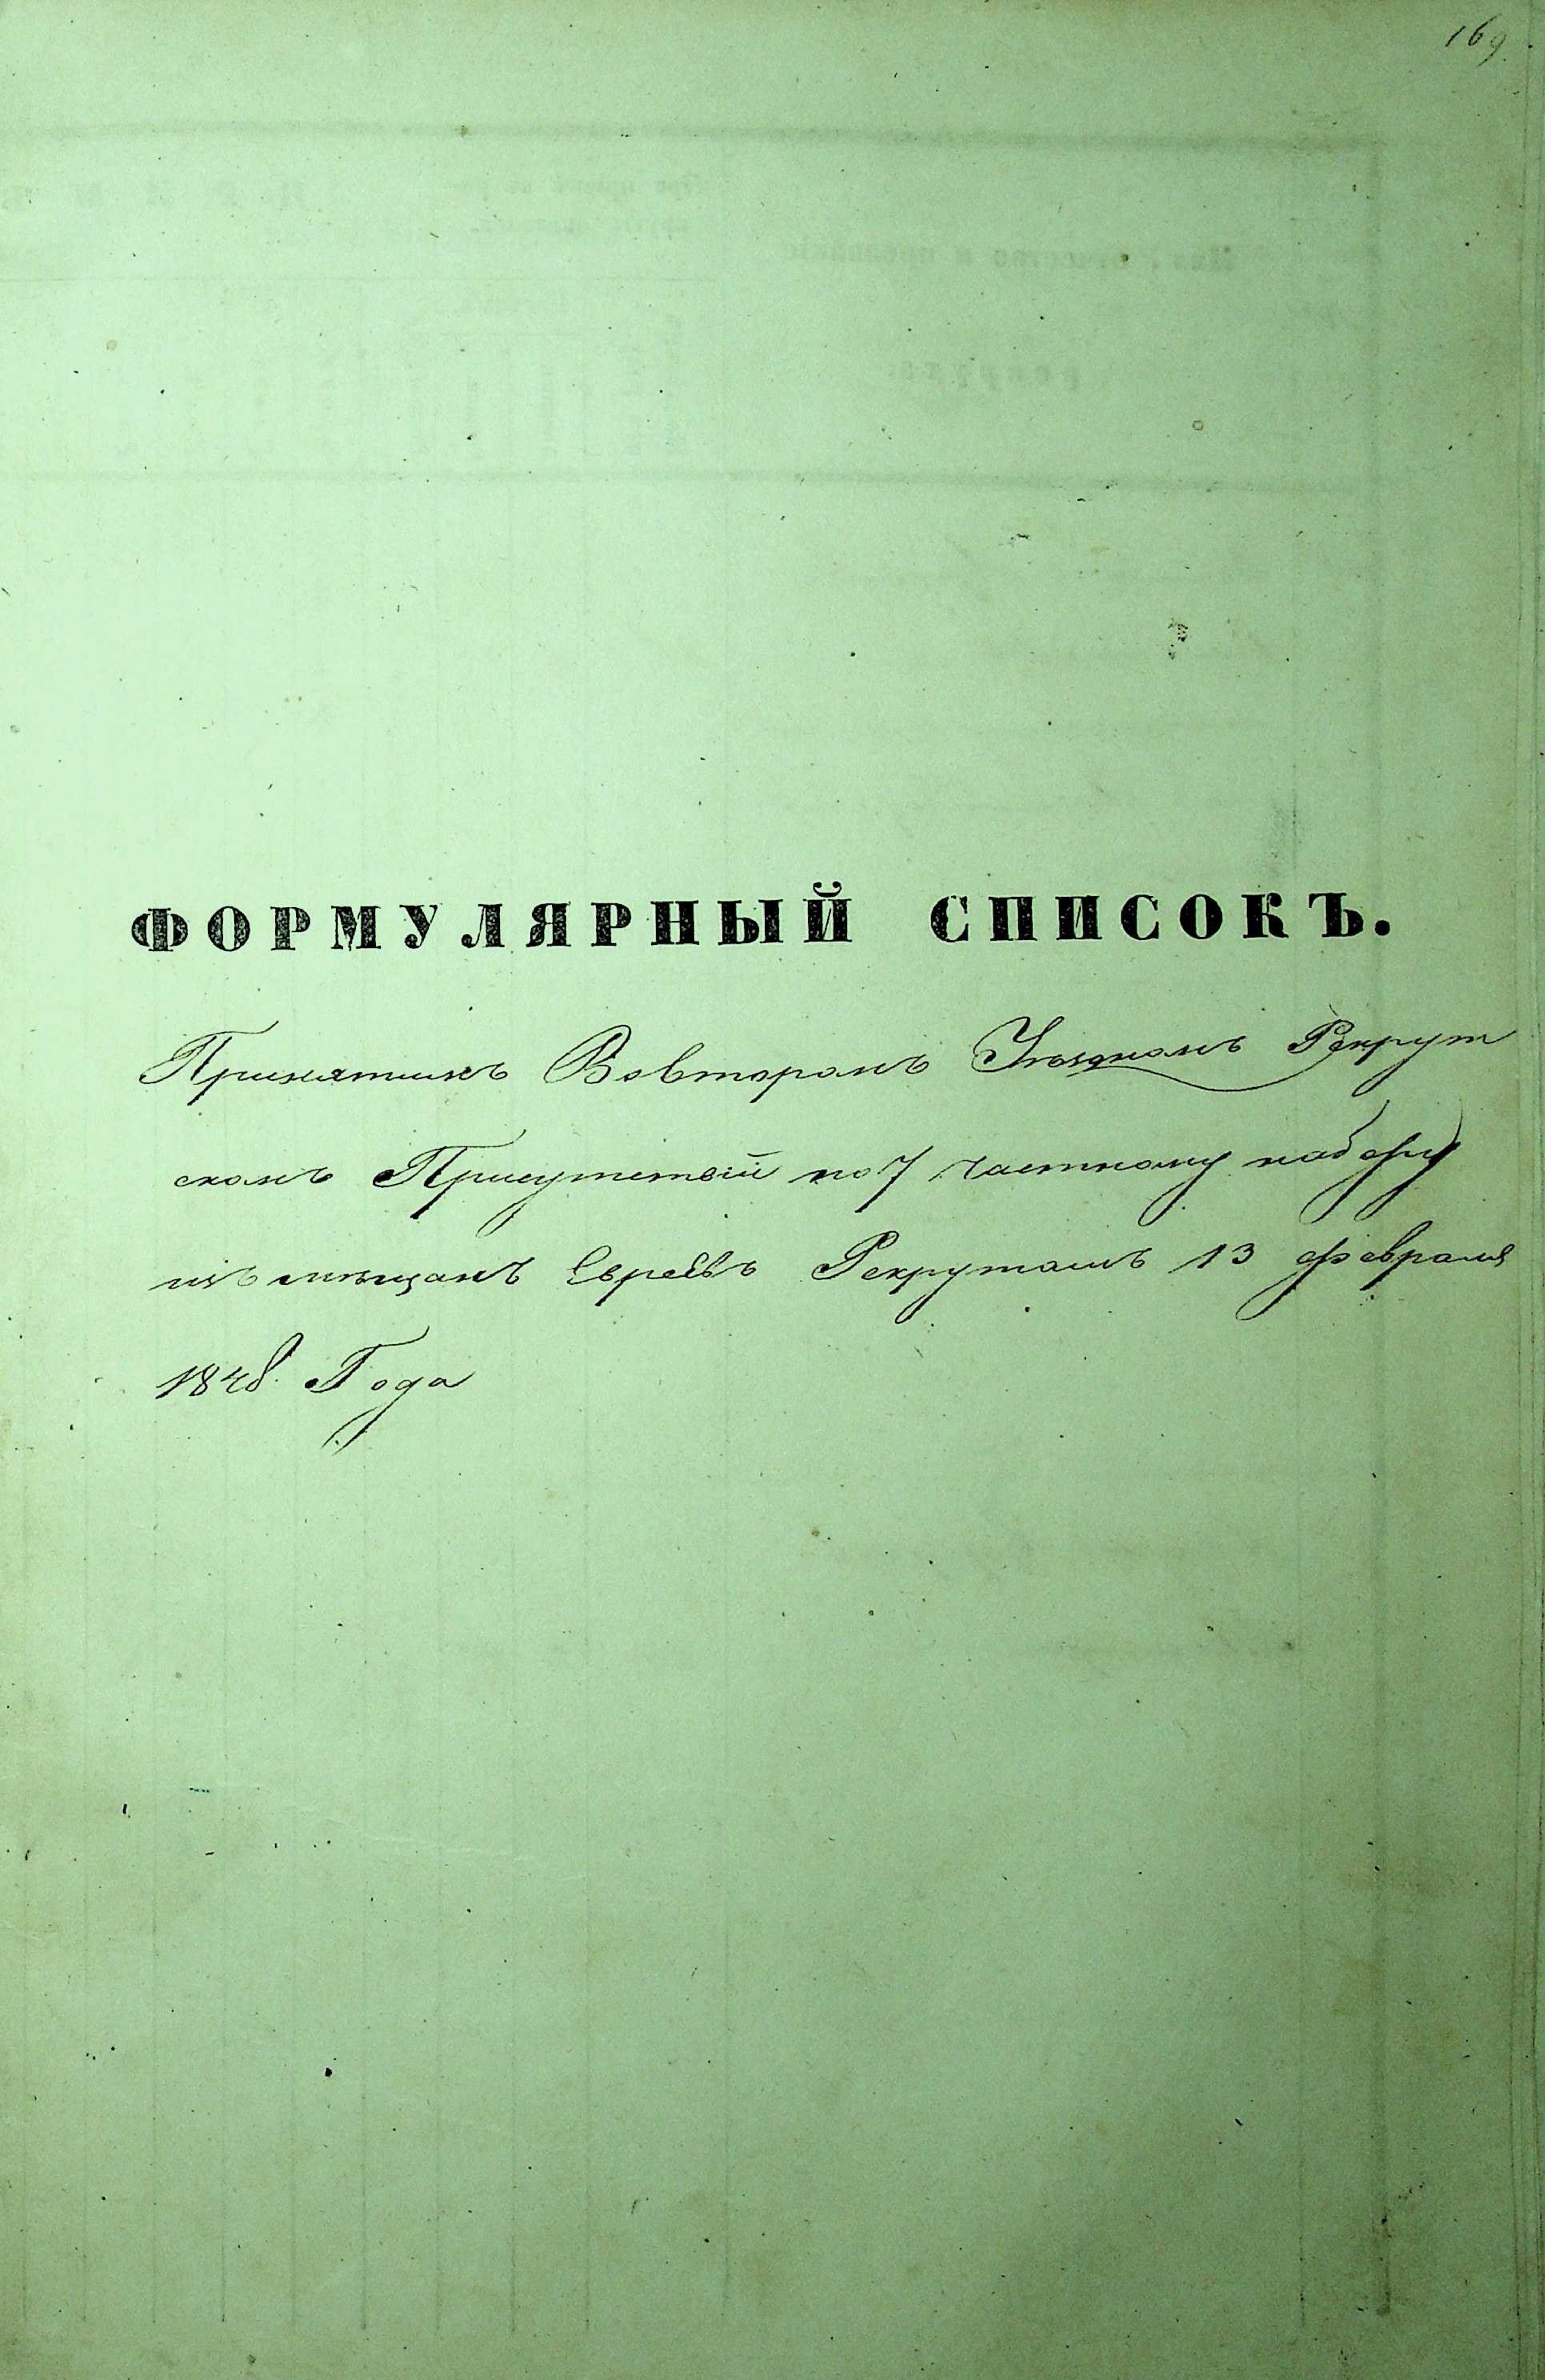 169.
ФОРМУЛЯРНЫЙ СПИСОКЪ.
Принятымъ Вовторомъ Уѣздномъ Рекрут
скомъ Присутствіи по 7 частному набору
изъ мѣщанъ Евреевъ Рекрутамъ 13 февраля
1848 Года